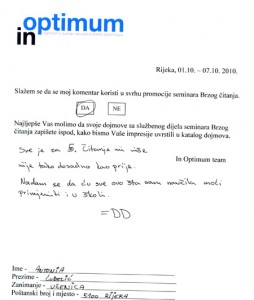 optimum
in
Rijeka, 01.10. – 07.10. 2010.
Slažem se da se moj komentar koristi u svrhu promocije seminara Brzog čitanja.
DA NE
Najljepše Vas molimo da svoje dojmove sa službenog dijela seminara Brzog
čitanja zapišete ispod, kako bismo Vaše impresije uvrstili u katalog dojmova.
In Optimum team
Sve je za 5. Čitanje mi više
nije toliko dosadno kao prije.
Nadam se da ću sve ovo što sam naučila moći
primjeniti i u školi.
=DD
Ime - Antonia
Prezime -
Zanimanje - učenica
Poštanski broj i mjesto - 5100 Rijeka